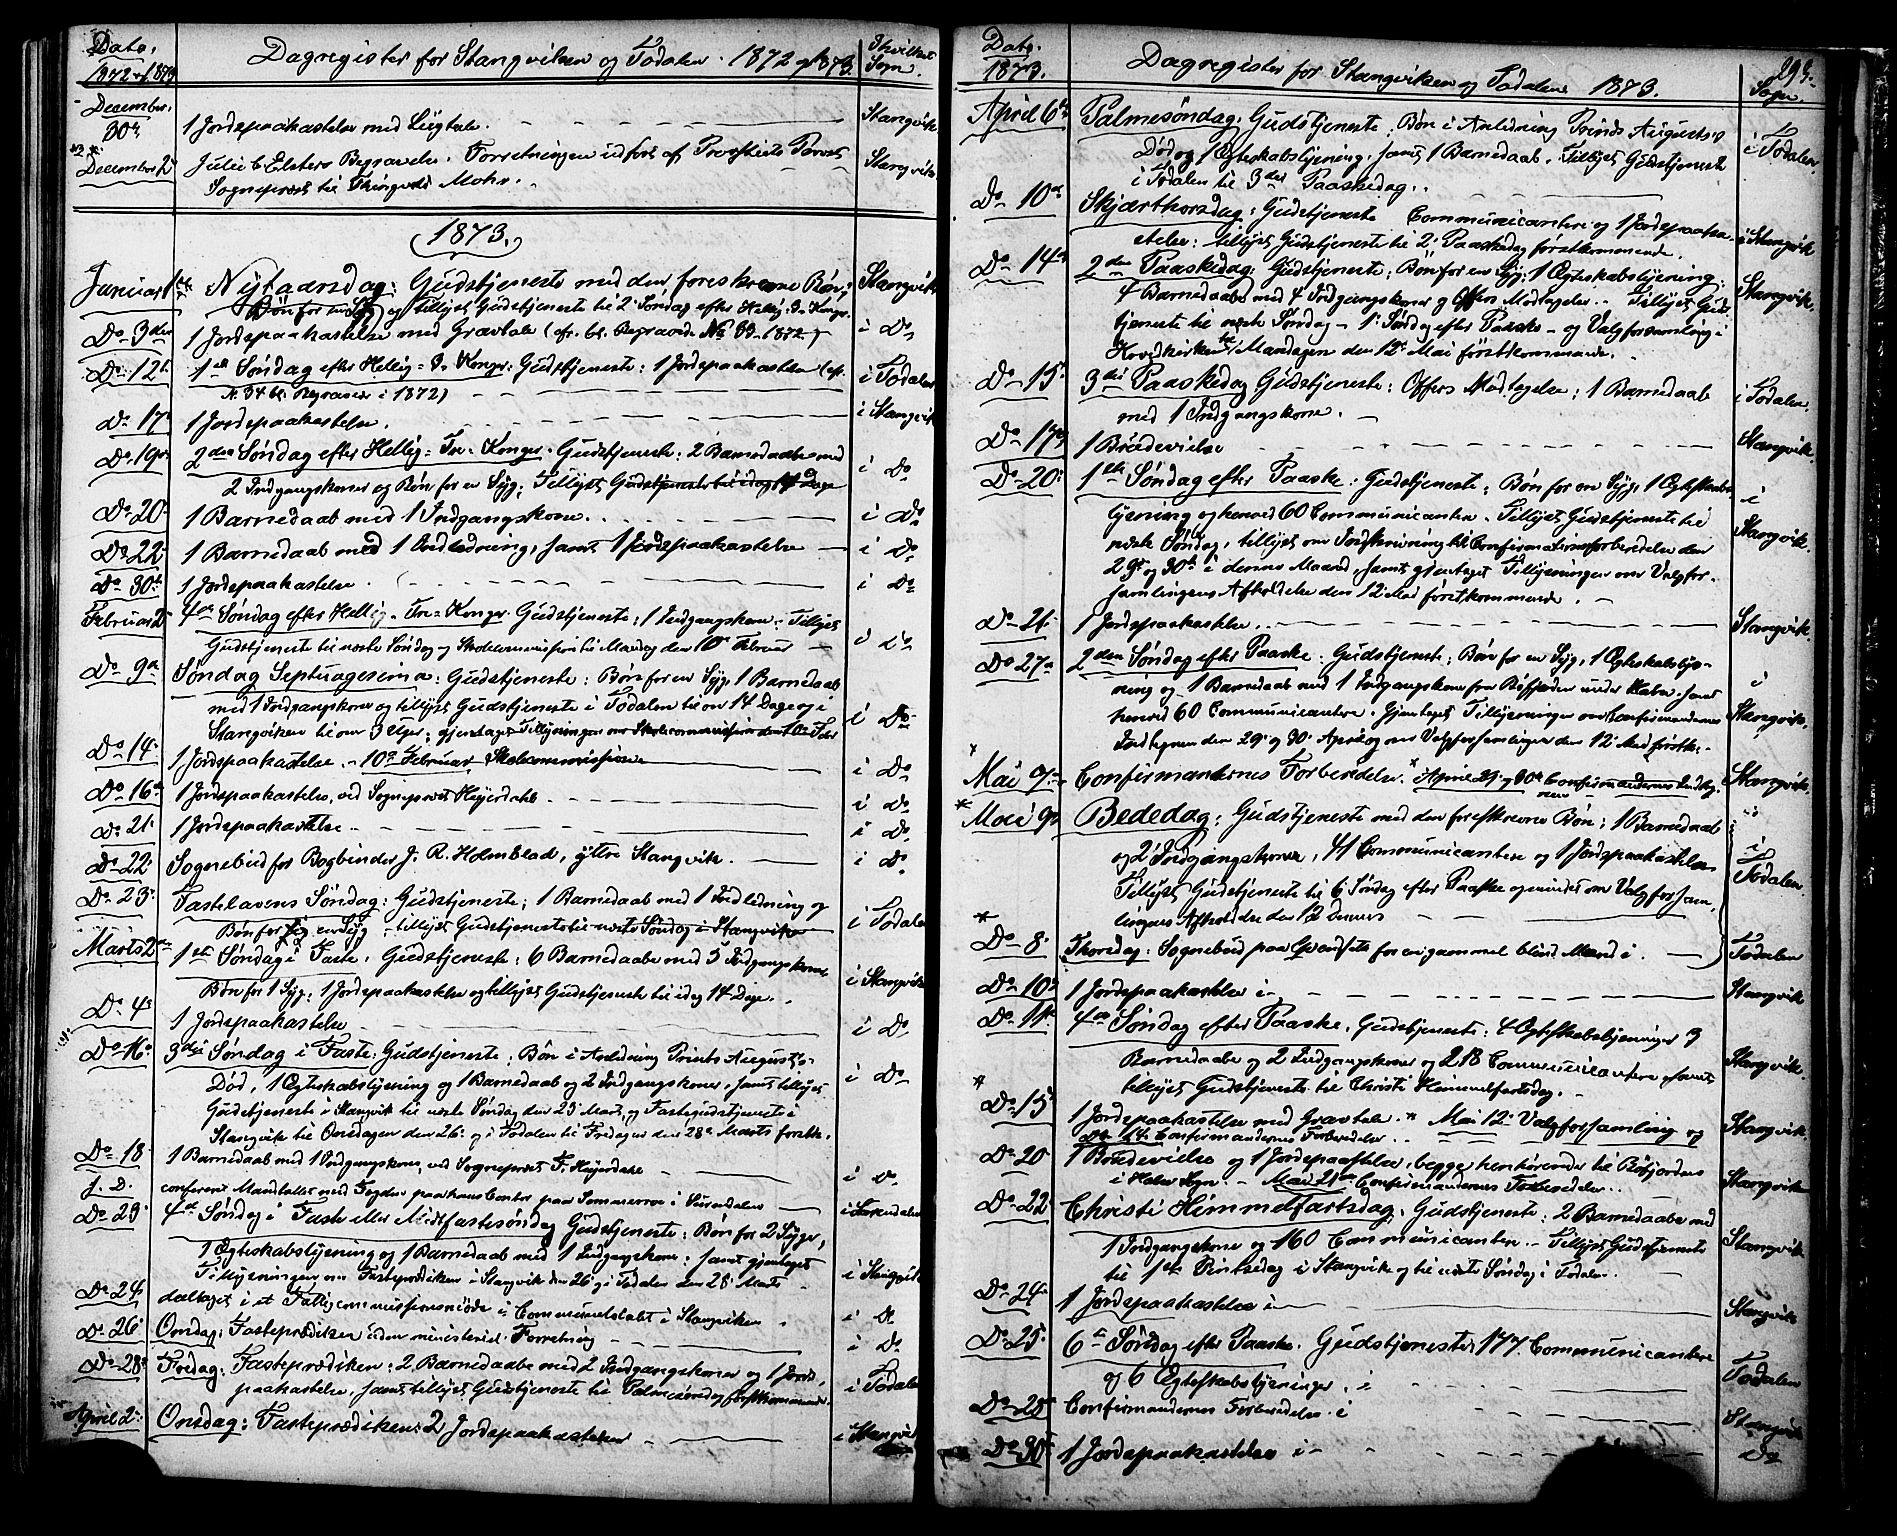 Dato. 1872 & 1873 Dagregister for Stangviken og Todalen. 1872 og 1873. I hvilket Sogn.
December 30te 1 Jordspaakastelse med Liigtale. Stangvik
December 2 Julie C. Elsters Begravelse. Forretningen udført af Provstiets Provst Stangvik
Sognepræst til Thingvold Mohr.
(1873.)
Januar 1ste Nytaarsdag: Gudstjeneste med den foreskrevne Bøn; Stangvik
Bøn for en Syg og tillyst Gudstjeneste til 2 Søndag efter Hellig 3 Konger
Do 3die 1 Jordspaakastelse med Gravtale (cfr. bl. Begravede No 33. 1872) i Do
Do 12te 1ste Søndag efter Hellig=3=Konger: Gudstjeneste: 1 Jordspaakastelse (cfr. i Todalen
N. 34 bl. Begravede i 1872)
Do 17 1 Jordspaakastelse. i Stangvik
Do 19de 2den Søndag efter Hellig=Tre=Konger. Gudstjeneste: 2 Barnedaabe med i Do
2 Indgangskoner og Bøn for en Syg; Tillyst Gudstjeneste til idag 14 Dage
Do 20 1 Barnedaab med 1 Indgangskone. i Do
Do 22 1 Barnedaab med 1 Indledning, samt 1 Jordspaakastelse i Do
Do 30te 1 Jordspaakastelse. i Do
Februar 2 4de Søndag efter Hellig=Tre=Konger. Gudstjeneste; 1 Indgangskone. Tillyst
Gudstjeneste til næste Søndag og Skolecommission til Mandag den 10de Februar i Do
Do 9de Søndag Septuagesima: Gudstjeneste: Bøn for en Syg, 1 Barnedaab
med 1 Indgangskone og tillyst Gudstjeneste i Todalen til om 14 Dage og i
Stangviken til om 3 Uger; gjentaget Tillysningen om Skolecommission den 10de Febr i Do
Do 14 1 Jordspaakastelse. – 10de Februar Skolecommission i Do
Do 16de 1 Jordspaakastelse, ved Sognepræst Heyerdahl. i Do
Do 21 1 Jordspaakastelse. i Do
Do 22 Sognebud for Bogbinder J. R. Holmblad, yttre Stangvik. i Do
Do 23 Fastelavens Søndag: Gudstjeneste; 1 Barnedaab med 1 Indledning og i Todalen
Bøn for en Syg tillyst Gudstjeneste til næste Søndag i Stangvik
Marts 2den 1ste Søndag i Faste. Gudstjeneste: 6 Barnedaabe med 5 Indgangskoner
Bøn for 1 Syg; 1 Jordspaakastelse og tillyst Gudstjeneste til idag 14 Dage. i Stangvik
Do 4 1 Jordspaakastelse i Do
Do 16 3die Søndag i Faste: Gudstjeneste; Bøn i Anledning Prints Augusts
Død, 1 Egteskabslysning og 1 Barnedaab og 2 Indgangskoner, samt tillyst i Do
Gudstjeneste i Stangvik til næste Søndag den 23 Marts og Fastegudstjeneste i
Stangvik til Onsdagen den 26 og i Todalen til Fredagen den 28de Marts
Do 18 1 Barnedaab med 1 Indgangskone, ved Sognepræst F. Heyerdahl i Do
s. D. confereret Mandtallet med Fogden paa hans Contor paa Sommerroe i Surendalen i Surendalen
Do 23 4de Søndag i Faste eller Midfastesøndag Gudstjeneste: Bøn for 2 Syge,
1 Egteskabslysning og 1 Barnedaab med 1 Indgangskone; samt gjentaget
Tillysningen om Fasteprædiken i Stangvik den 26 og i Todalen den 28 Marts i Stangvik
Do 24 deltaget i et Fattigcommissionsmøde i Communelokalet i Stangviken i Do
Do 26 Onsdag: Fasteprædiken uden ministeriel Forretning i Do
Do 28 Fredag: Fasteprædiken: 2 Barnedaabe med 2 Indgangskoner og 1 Jords
paakastelse, samt tillyst Gudstjeneste til Palmesøndag førstkommende. i Todalen
April 2 Onsdag: Fasteprædiken: 2 Jordspaakastelser i Stangvik
Dato. 1873. Dagregister for Stangviken og Todalen 1873. Sogn.
April 6te Palmesøndag: Gudstjeneste; Bøn i Anledning Prinds Augusts
Død og 1 Egteskabslysning, samt 1 Barnedaab. Tillyst Gudstjeneste i Todalen
i Todalen til 3die Paaskedag.
Do 10de Skjærthorsdag: Gudstjeneste Communicantere og 1 Jordspaaka
stelse: tillyst Gudstjeneste til 2 Paaskedag førstkommende. i Stangvik
Do 14 2den Paaskedag: Gudstjeneste; Bøn for en Syg; 1 Egteskabslysning;
4 Barnedaabe med 4 Indgangskoner og Offers Modtagelse. Tillyst Gud Stangvik
tjeneste til næste Søndag – 1ste Søndag efter Paaske – og Valgforsamling i
Hovedkirken til Mandagen den 12te Mai førstkommende.
Do 15 3die Paaskedag Gudstjeneste: Offers Modtagelse; 1 Barnedaab i Todalen
med 1 Indgangskone.
Do 17 1 Brudevielse Stangvik
Do 20 1ste Søndag efter Paaske: Gudstjeneste; Bøn for en Syg; 1 Egteskabs i
lysning og henved 60 Communicantere. Tillyst Gudstjeneste til Stangvik
næste Søndag, tillyst om Indskrivning til Confirmationsforberedelse den
29de og 30te i denne Maaned, samt gjentaget Tillysningen om Valgfor-
samlingens Afholdelse den 12 Mai førstkommende.
Do 21 1 Jordspaakastelse. Stangvik
Do 27de 2den Søndag efter Paaske: Gudstjeneste; Bøn for en Syg; 1 Egteskabslys-
ning og 1 Barnedaab med 1 Indgangskone fra Bøfjorden under Halse samt i
henved 60 Communicantere. Gjentaget Tillysningen om Confirmandernes Stangvik
Indtegnen den 29 og 30 April og om Valgforsamlingen den 12 Mai førstk.
* Mai 7 Confirmandernes Forberedelse. * April 29 og 30te Confirmandernes Indteg. Stangvik
* Mai 9de Bededag: Gudstjeneste med den foreskrevne Bøn; 1 Barnedaab
og 2 Indgangskoner, 41 Communicantere og 1 Jordspaakastelse i
Tillyst Gudstjeneste til 6 Søndag efter Paaske og mindet om Valgforsam Todalen
lingens Afholdelse den 12 dennes
* Do 8 Thorsdag: Sognebud paa for en gammel blind Mand i Todalen
Do 10 1 Jordspaakastelse i Stangvik
Do 11te 4de Søndag efter Paaske. Gudstjeneste: 4 Egteskabslysninger 3
Barnedaabe og 2 Indgangskoner og 218 Communicantere, samt Stangvik
tillyst Gudstjeneste til Christi Himmelfartsdag.
* Do 15 1 Jordspaakastelse med Gravtale. * Mai 12 Valgforsamling og Stangvik
Do 14 Confirmandernes Forberedelse.
Do 20 1 Brudevielse og 1 Jordspaakastelse, begge henhørende til Bøfjorden
i Halse Sogn. – Mai 21de Confirmandernes Forberedelse. Stangvik
Do 22 Christi Himmelfartsdag: Gudstjeneste: 2 Barnedaabe med
1 Indgangskone og 160 Communicantere. Tillyst Gudstjeneste Stangvik
til 1ste Pintsedag i Stangvik og til næste Søndag i Todalen.
Do 24 1 Jordspaakastelse i Stangvik
Do 25 6te Søndag efter Paaske. Gudstjeneste: 177 Communicantere
og 6 Egteskabslysninger. i Todalen
Do 28 Confirmandernes Forberedelse i Stangvik
Do 30 1 Jordspaakastelse i Do